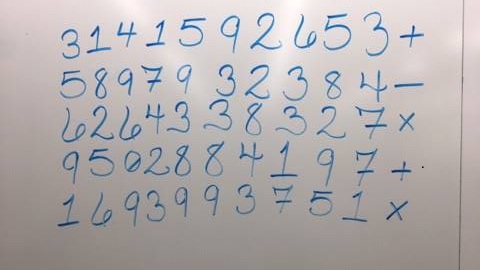 3141592653+
5897932384-
6264338327×
9502884197+
1693993751×